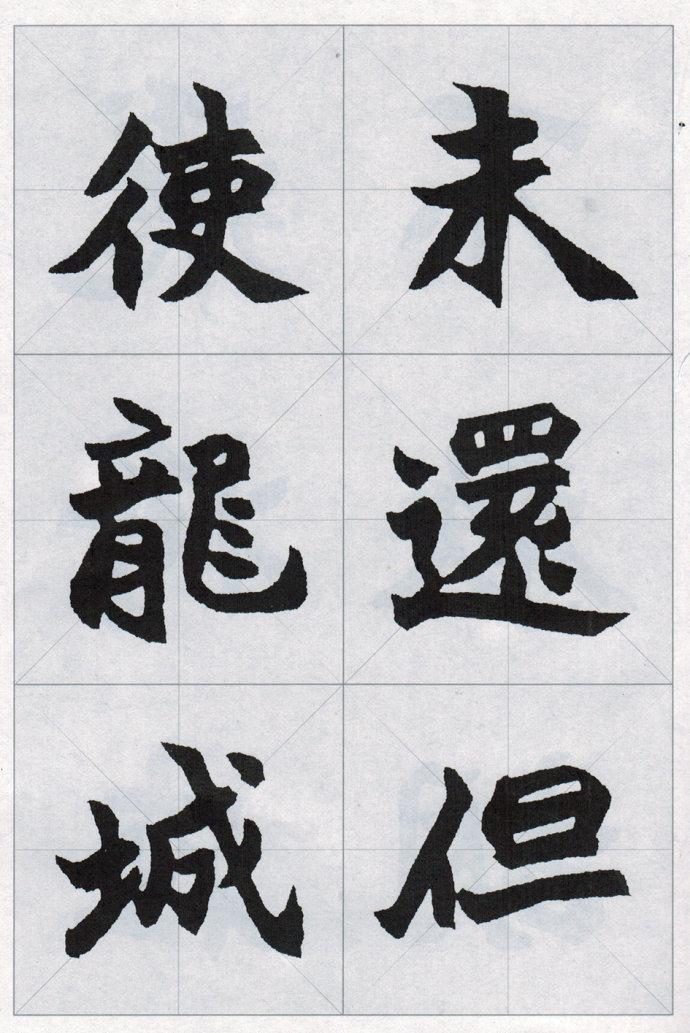 未還但
使龍城